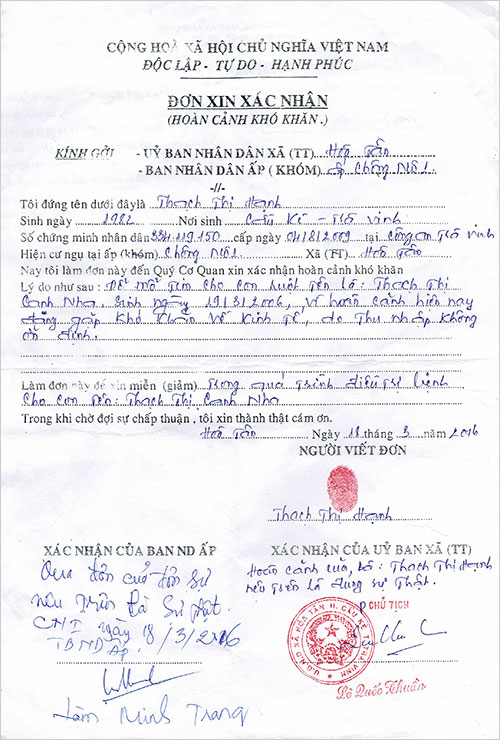 CỘNG HOÀ XÃ HỘI CHỦ NGHĨA VIỆT NAM
ĐỘC LẬP - TỰ DO - HẠNH PHÚC
ĐƠN XIN XÁC NHẬN
(HOÀN CẢNH KHÓ KHĂN .)
KÍNH GỞI - UỶ BAN NHÂN DÂN XÃ (TT) Hoà Tân
- BAN NHÂN DÂN ẤP ( KHÓM) ấp Chông Nô 1
-//-
Tôi đứng tên dưới đây là Thạch Thị Hạnh
Sinh ngày 1982 Nơi sinh Cầu Kè - Trà Vinh
Số chứng minh nhân dân 334119150 cấp ngày 04/8/2009 tại Công an Trà Vinh
Hiện cư ngụ tại ấp (khóm) Chông Nô 1 Xã (TT) Hoà Tân
Nay tôi làm đơn này đến Quý Cơ Quan xin xác nhận hoàn cảnh khó khăn
Lý do như sau : Để mổ Tim cho con ruột tên là: Thạch Thị
Canh Nha. Sinh ngày 19/3/2006, vì hoàn cảnh hiện nay
đang gặp khó khăn về kinh tế, do thu nhập không
ổn định.
Làm đơn này để xin miễn (giảm) Trong quá trình điều trị bệnh
Cho con tên: Thạch Thị Canh Nha
Trong khi chờ đợi sự chấp thuận , tôi xin thành thật cám ơn.
Hoà Tân Ngày 18 tháng 3 năm 2016
NGƯỜI VIẾT ĐƠN
Thạch Thị Hạnh
XÁC NHẬN CỦA BAN ND ẤP
Qua đơn của đơn sự
nêu trên là sự thật.
CN1 ngày 18/3/2016
TBND ấp
Lâm Minh Trang
XÁC NHẬN CỦA UỶ BAN XÃ (TT)
Hoàn cảnh của bà: Thạch Thị Hạnh
nêu trên là đúng sự thật.
CHỦ TỊCH
U.B.N.D XÃ HÒA TÂN H. CẦU KÈ T. TRÀ VINH
Lê Quốc Thuần